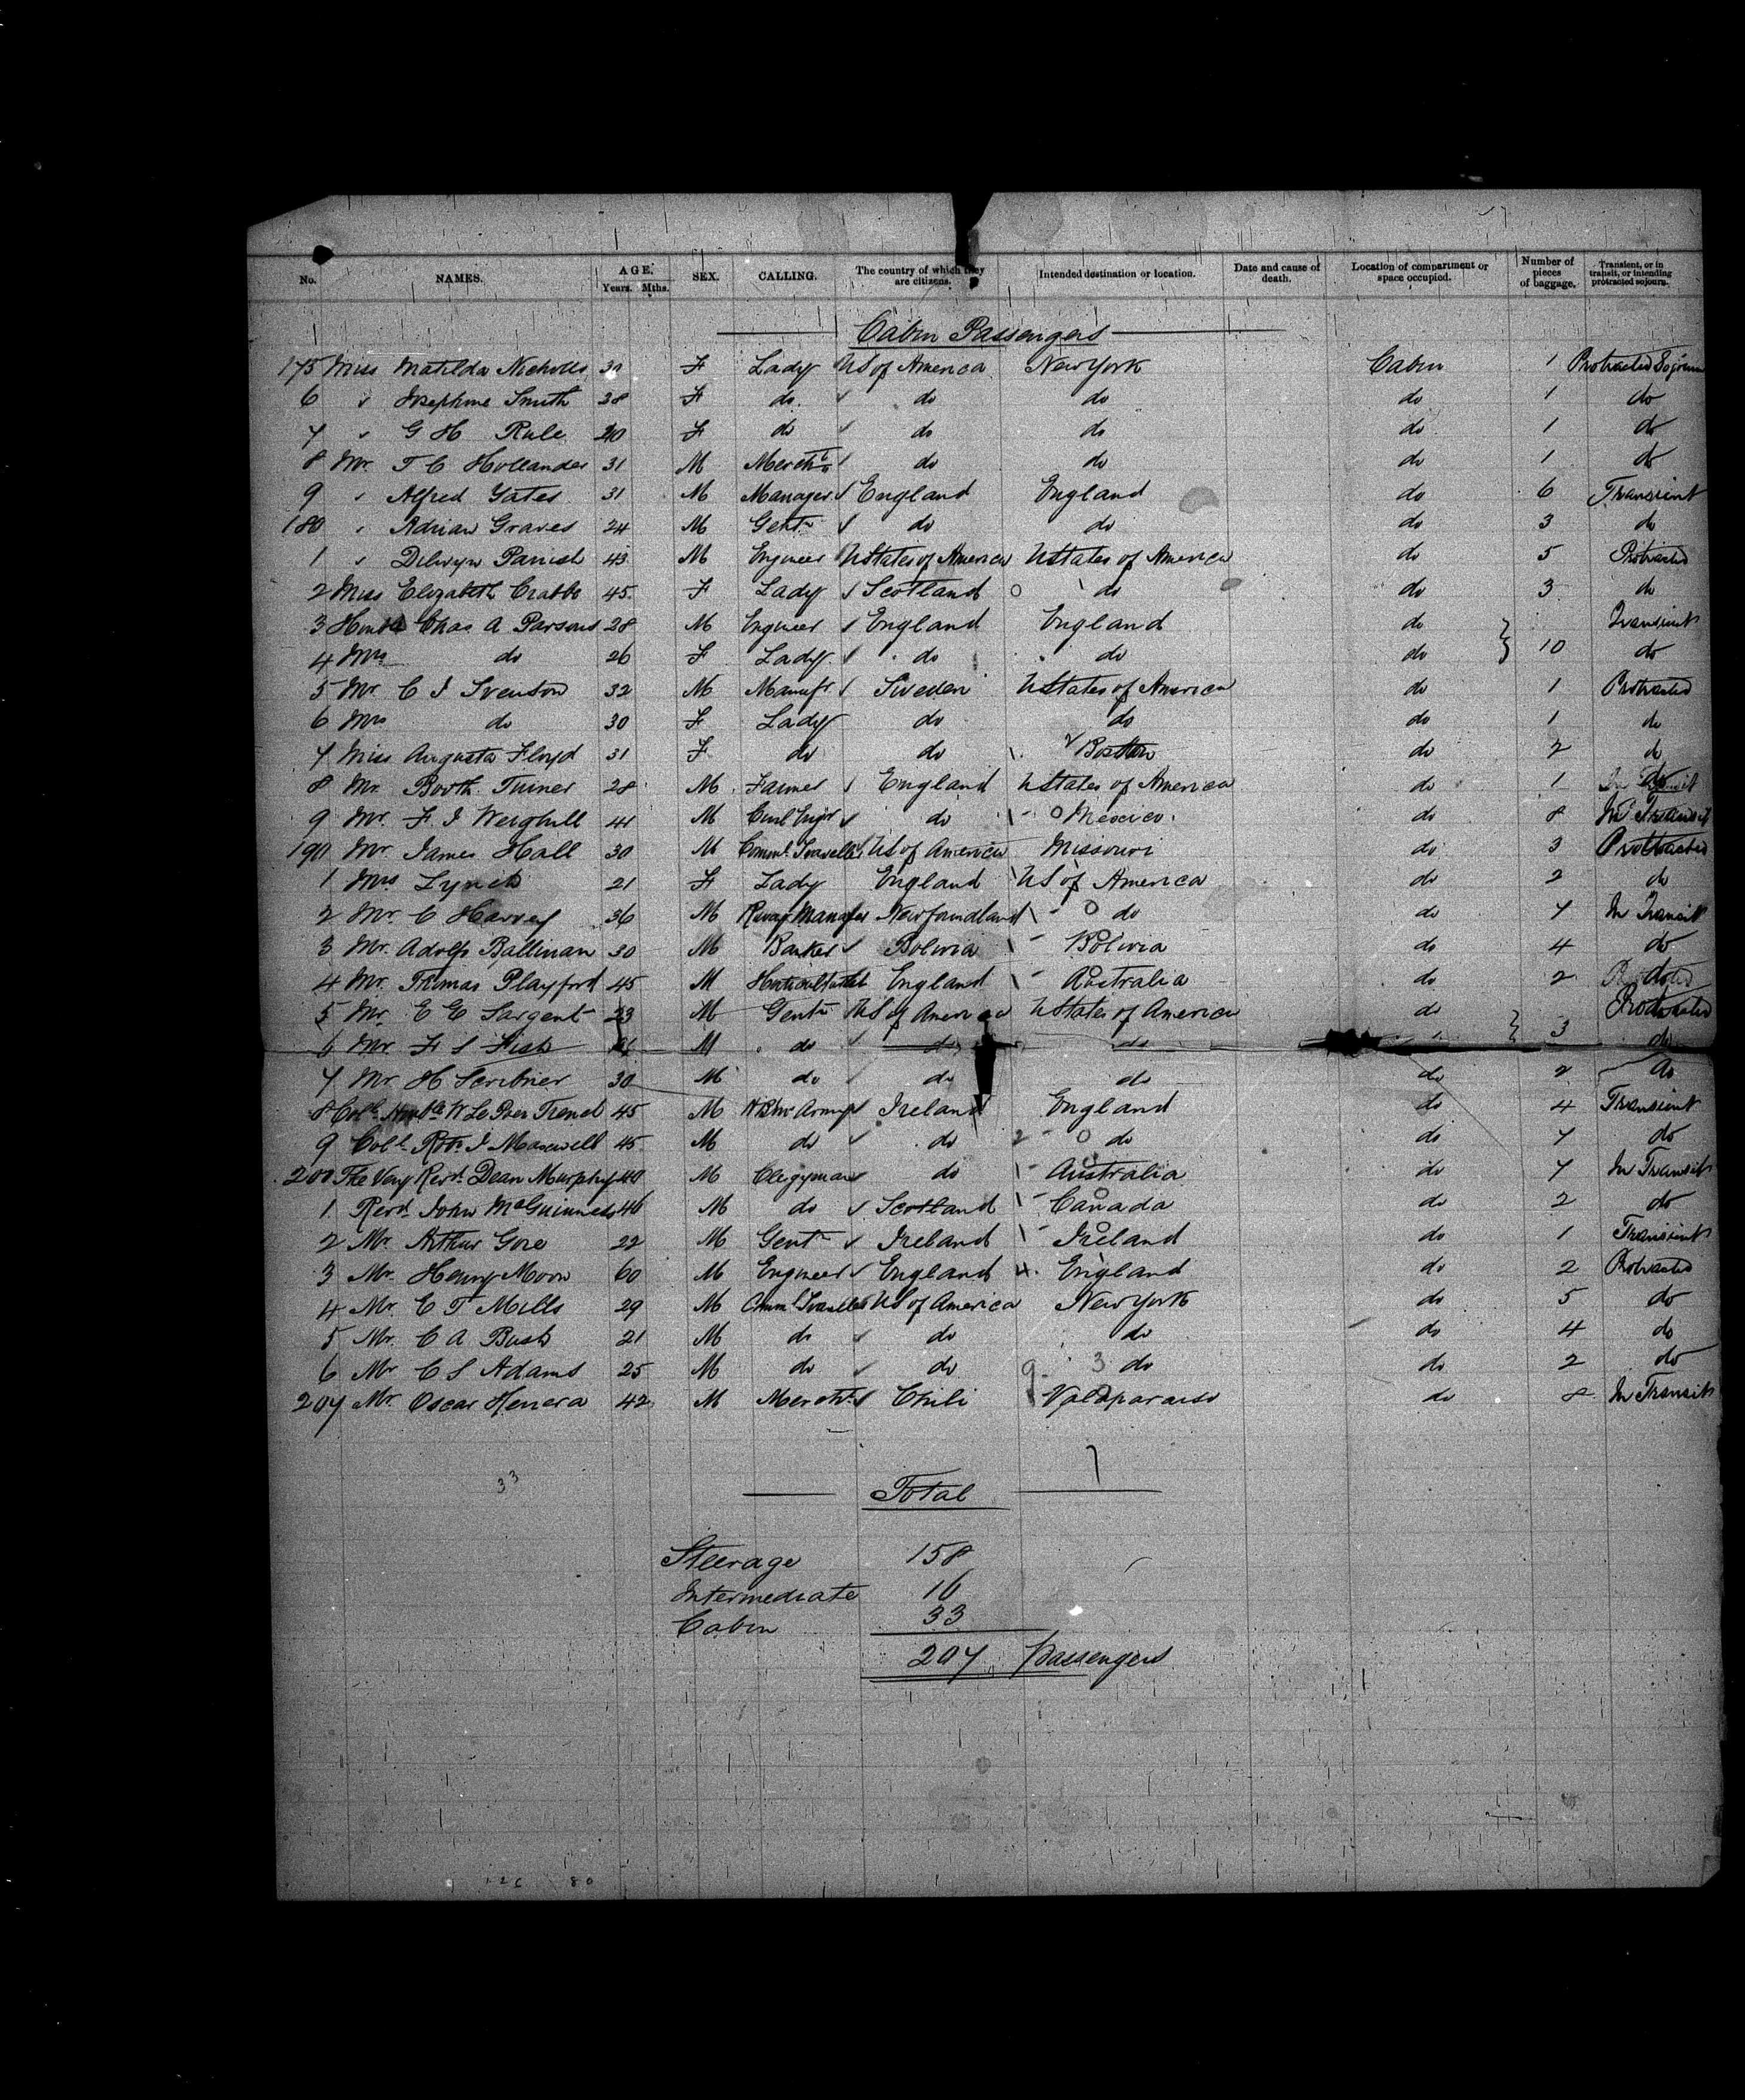 No. NAMES. AGE. Years. Mths. SEX. CALLING. The country of which they are citizens. Intended destination or location. Date and cause of death. Location of compartment or space occupied. Number of pieces of baggage. Transient, or in transit, or intending protracted sojourn.
Cabin Passengers
175 Miss Matilda Nicholls F Lady US of America New York Cabin 1 Protracted Sojourn
6 " Josephine Smith 28 F do do do do 1 do
7 " G H Rule 20 F do do do do 1 do
8 Mr. T C Hollander 31 M Mercht do do do 1 do
9 " Alfred Yates 31 M Manager England England do 6 Transient
180 " Adrian Graves 24 M Gentn do do do 3 do
1 " Delwyn Parrish 43 M Engineer UStates of America UStates of America do 5 Protracted
2 Miss Elizabeth Crabbe 45 F Lady Scotland do do 3 do
3 Honble Chas A Parsons 28 M Engineer England England do Transient
4 Mrs do 26 F Lady do do do 10 do
5 Mr. C J Svenson 32 M Manufr Sweden UStates of America do 1 Protracted
6 Mrs do 30 F Lady do do do 1 do
7 Miss Augusta Floyd 31 F do do Boston do 2 do
8 Mr. Booth Turner 28 M Farmer England UStates of America do 1 do
9 Mr. F J Weighill 41 M Civil Engr do Mexico do 8 In Transit
190 Mr James Hall 30 M Comml. Traveller US of America Missouri do 3 Protracted
1 Mrs Lynch 21 F Lady England US of America do 2 do
2 Mr. C Harvey 36 M Manager Newfoundland do do 7 In Transit
3 Mr. Adolfo Ballivian 30 M Banker Bolivia Bolivia do 4 do
4 Mr. Thomas Playford 45 M Horticulturist England Australia do 2 do
5 Mr. E E Sargent 23 M Gentn US of America UStates of America do Protracted
6 Mr. F S Fish M do do do 3 do
7 Mr. H Scribner 30 M do do do do 2 do
8 Col. Honble W Le Poer Trench 45 M Army Ireland England do 4 Transient
9 Col. Robt. J Maxwell 45 M do do do do 7 do
200 The Very Revd. Dean Murphy 40 M Clergyman do Australia do 7 In Transit
1 Revd. John McGuinness 46 M do Scotland Canada do 2 do
2 Mr. Arthur Gore 22 M Gentn Ireland Ireland do 1 Transient
3 Mr. Henry Moon 60 M Engineer England 4 England do 2 Protracted
4 Mr. E T Mills 29 M Comml Traveller US of America New York do 5 do
5 Mr. C A Bush 21 M do do do do 4 do
6 Mr C S Adams 25 M do do 9 3 do do 2 do
207 Mr. Oscar Herrera 42 M Mercht. Chili Valparaiso do 8 In Transit
33
Total
Steerage 158
Intermediate 16
Cabin 33
207 Passengers